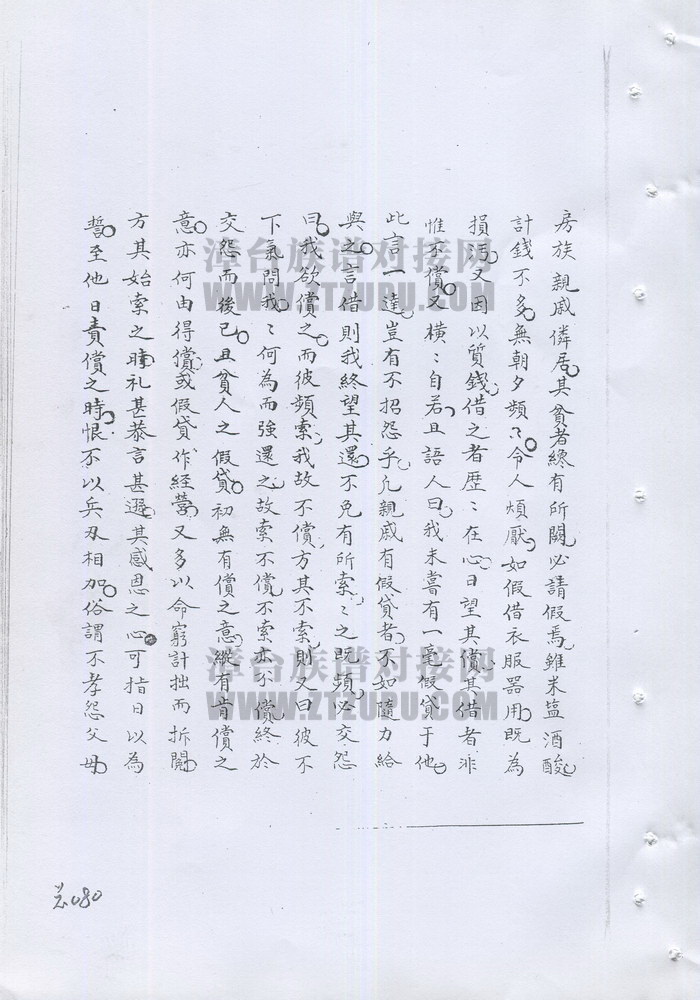 房族親戚隣居其貧者總有所闕必請假焉雖米塩酒酸
計錢不多無朝夕頻々令人煩厭如假借衣服器用既為
損污又因以質錢借之者歷々在心日望其償其借者非
惟不償又橫々自若且語人曰我未嘗有一毫假貸于他
此言一達豈有不招怨乎凡親戚有假貸者不如隨力給
與之言借則我終望其還不免有所索々之既頻必交怨
曰我欲償之而彼頻索我故不償方其不索則又曰彼不
下氣問我々何為而強還之故索不償不索亦不償終於
交怨而後已且貧人之假貸初無有償之意縱有肯償之
意亦何由得償或假貸作經營又多以命窮計拙而折閱
方其始索之時礼甚恭言甚遜其感恩之心可指日以為
誓至他日責償之時恨不以兵刃相加俗謂不孝怨父母
总080
漳台族谱对接网
WWW.ZTZUPU.COM
漳台族谱对接网
WWW.ZTZUPU.COM